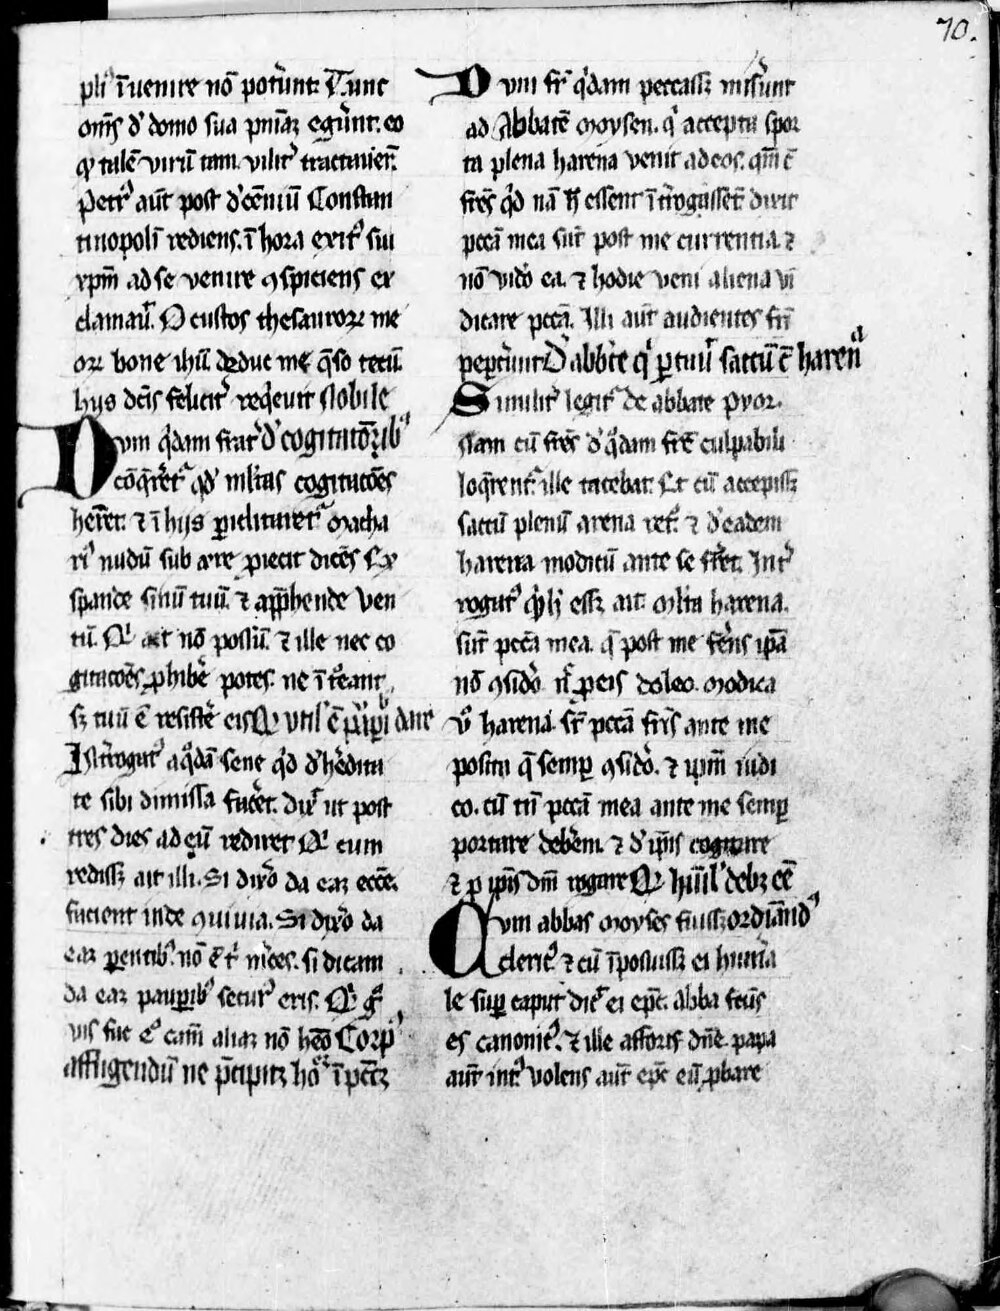 70.
pli᷒ īuenire nō potūnt. Tunc
om̄s d' domo sua pn̄iaꝫ eg̃unt. eo
ꝙ talē virū tam vilit᷒ tractauer̄.
Petr᷒ aūt post d'cēniū Constan
tinopoli rediens. ī hora exit᷒ sui
xp̄m ad se venire ꝯspiciens ex
clamauͥ. O custos thesauroꝝ me
oꝝ bone ih̄u deduc me q̄so tecū.
hijs dc̄is felicit᷒ req̇euit Nobile
Dum q̇dam frat᷒ d' cogitatōnib᷒
cōq̄ret᷒ qd' ml̄tas cogitacōes
h̄eret. ⁊ ī hijs ꝑiclitaret᷒ Macha
ri᷒ nudū sub aere ꝓiecit dicēs Ex
pande sinū tuū. ⁊ app̄hende ven
tū. Qͥ ait nō possū. ⁊ ille nec co
gitacōes ꝓhibē potes. ne ītͤant
sꝫ tuū ē resistē eis
Int̄rogat᷒ a q̇dā sene q̇d d' h̄edita
te sibi dimissa fac̄et. dixͭ ut post
tres dies ad eū rediret Qͥ cum
redissꝫ ait illi. Si dix̄o da eaꝫ ecc̄e.
facient inde ꝯuiuia. Si dix̄o da
eaꝫ parentib᷒. nō ē tͥ m̄ces. si dicam
da eaꝫ paupib᷒ secur᷒ eris. Qͥ gͦ
vis fac cͣ cām aliaꝫ nō h̄eo Corp᷒
affligendū ne p̄cipitꝫ hōͥeꝫ ī pc̄tꝫ
Dum fr̄ q̇dam peccassꝫ mis̄unt
ad Abbatē Moysen. qͥ accepta spor
ta plena harena venit ad eos. qm̄ ē
fr̄es q̇d nā h̄ essent īt̄rogassēt dixit
pcc̄a mea sūt post me currentia. ⁊
nō vido ea. ⁊ hodie veni aliena iu
dicare pcc̄a. Illi aūt audientes fr̄i
peꝑc̄unt D' abbīe qͥ ꝑtauͥ saccū ē harena
Similit᷒ legit᷒ de abbate pyor.
Nam cū fr̄es d' q̇dam fr̄e culpabili
loq̄rent᷒. ille tacebat. Et cū accepissꝫ
saccū plenū arena ret᷒. ⁊ d' eadem
harena modicū ante se ffet. Int᷒
rogat᷒ q̇d h̄ essꝫ ait. Ml̄ta harena.
sūt pcc̄a mea. q̄ post me fēns ip̄a
nō ꝯsid̄o. n̄ ꝓ eis doleo. Modica
v᷒ harena sr̄ pcc̄a fr̄is ante me
posita q̄ semꝑ ꝯsid̄o. ⁊ ip̄m iudi
co. cū tn̄ pcc̄a mea ante me semꝑ
portare deb̄em. ⁊ d' ip̄is cogitare
⁊ ꝓ ip̄is dm̄ rogare Qͥ hūīl' debꝫ eē
Cum abbas moyses fuissꝫ ordīand᷒
Cleric᷒ ⁊ cū īposuissꝫ ei hum̄a
le suꝑ caput dix͛ ei ep̄c. abba fc̄us
es canonic᷒. ⁊ ille afforis dn̄e papa
aūt int᷒. volens aūt ep̄c eū ꝓbare